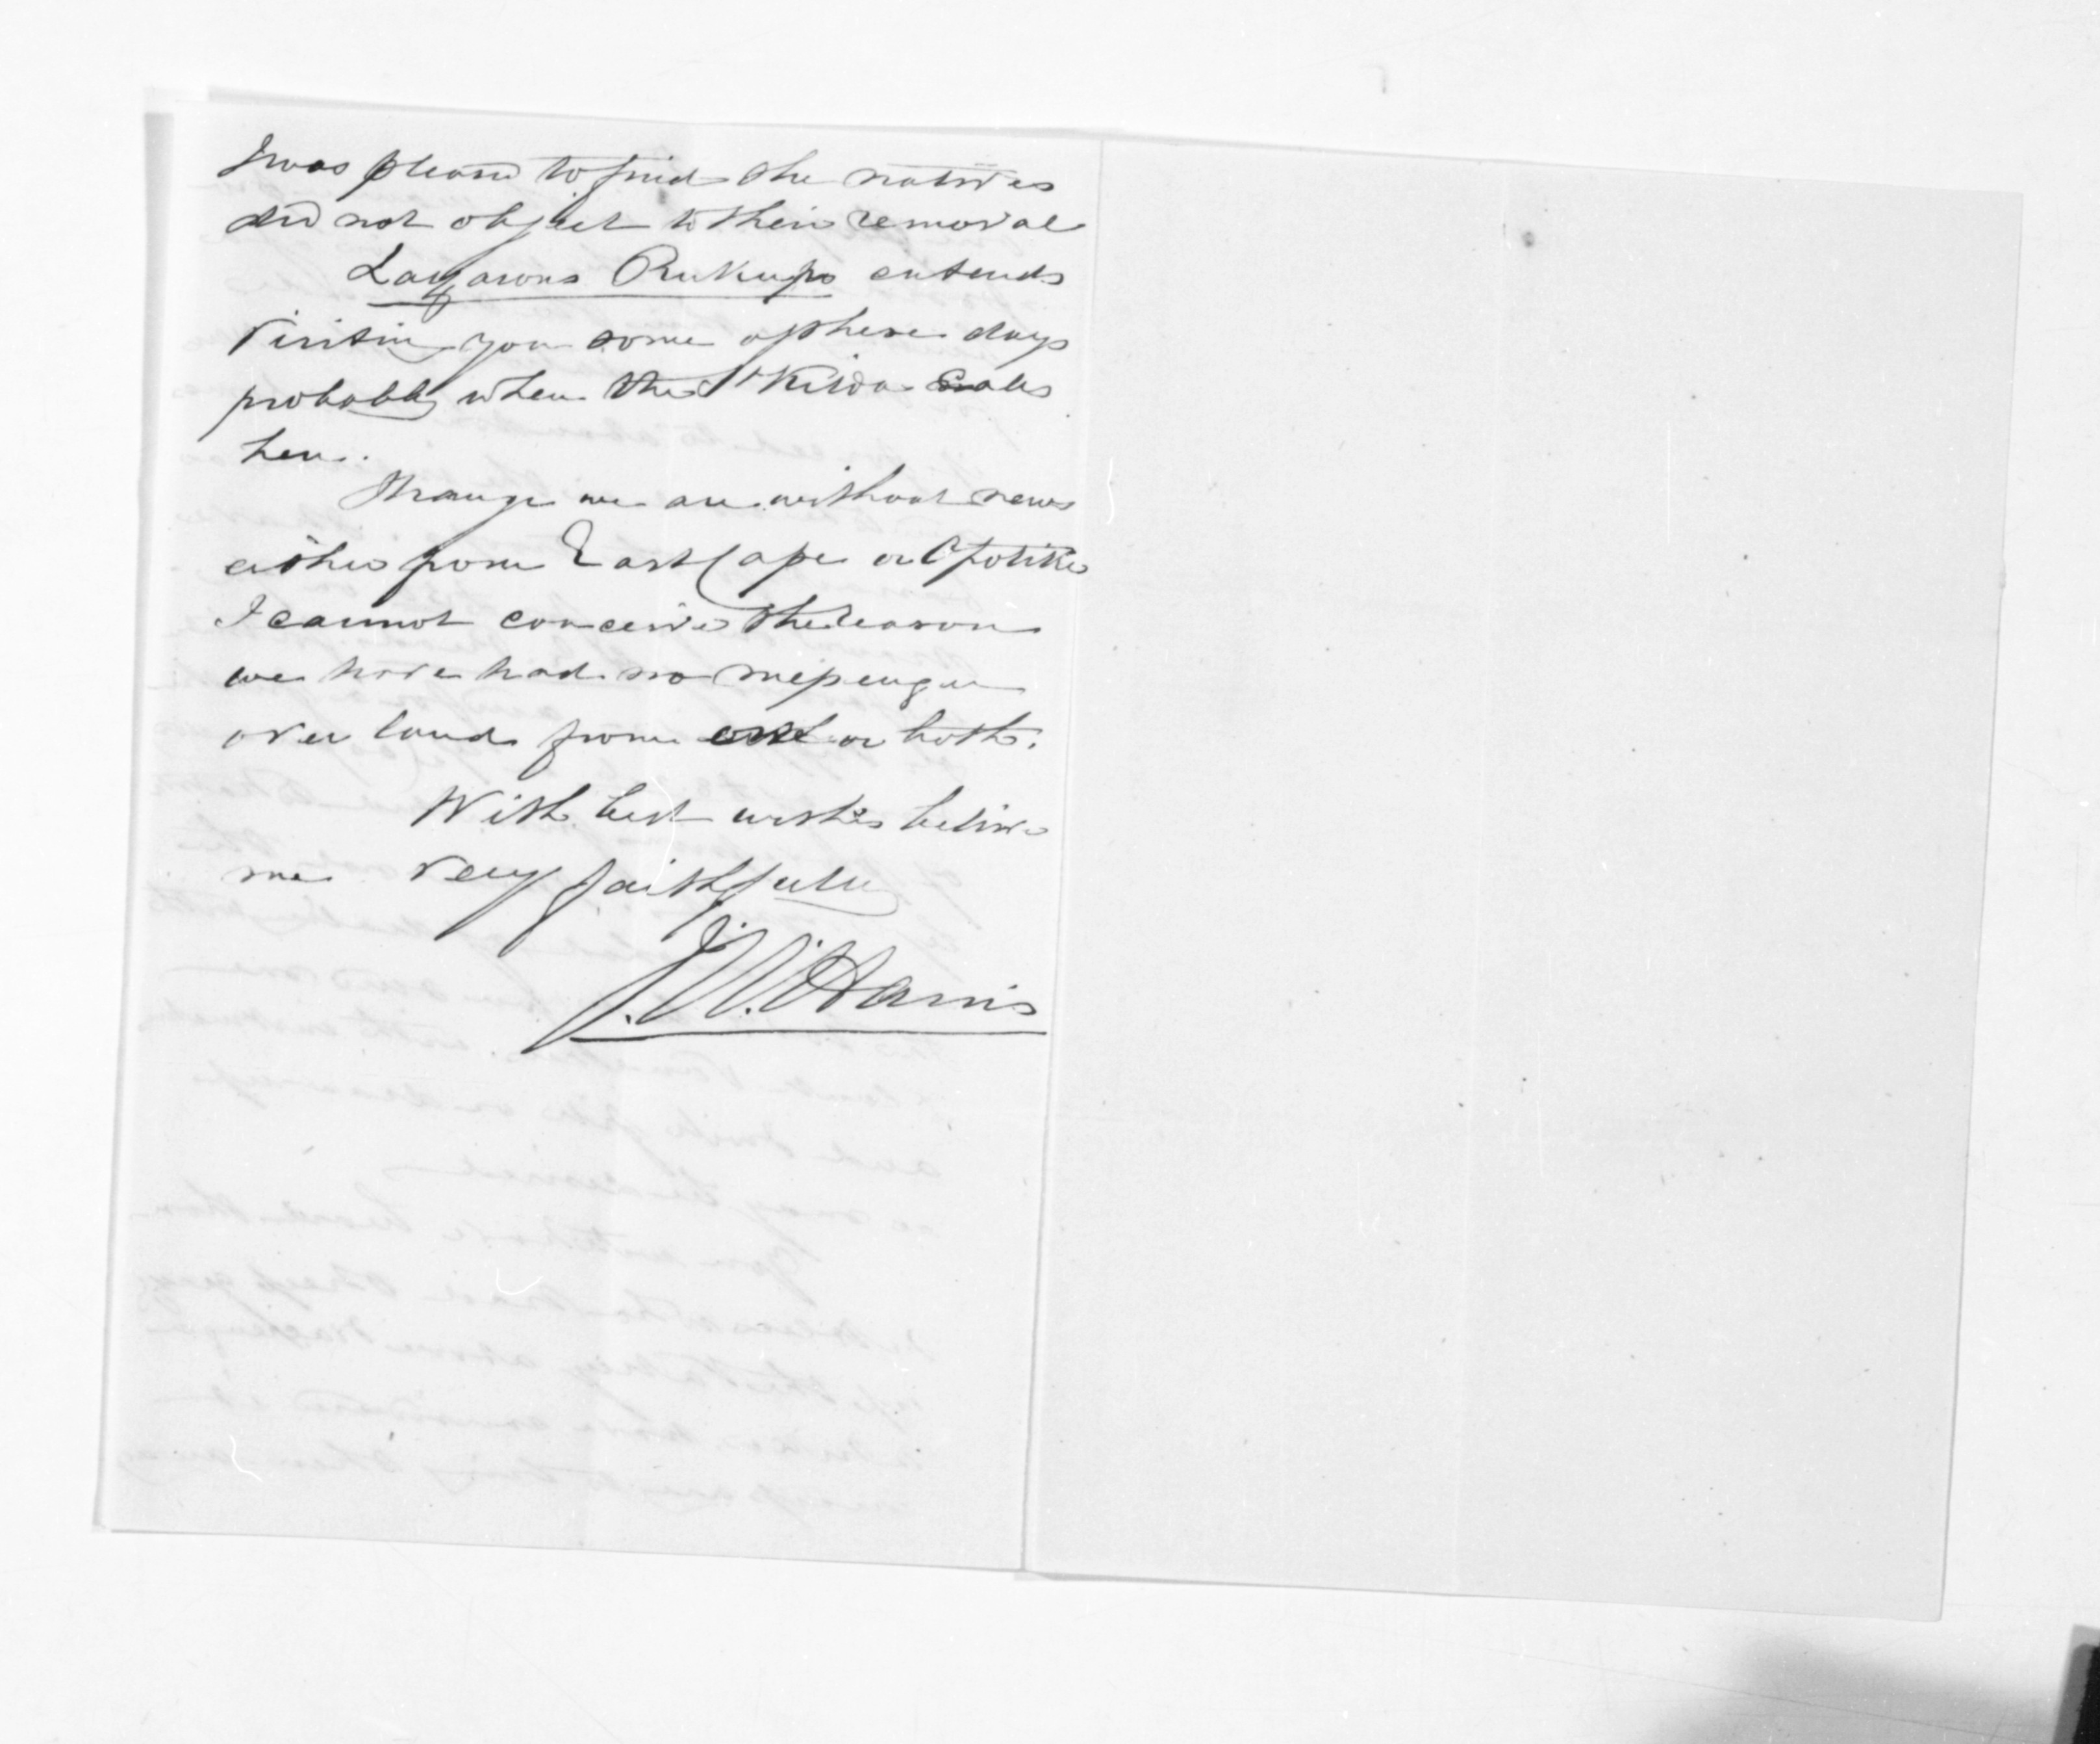 I was pleased to find the natives
did not object to their removal
Lazarous Rukupo entends
visiting you some of these days
probably when the St Kilda calls
here.
Strange we are without news
either from East Cape or Opotiki
I cannot conceive the reason
we have had no messenger
over land from one or both.
With best wishes believe
me very faithfully
J. W. Harris